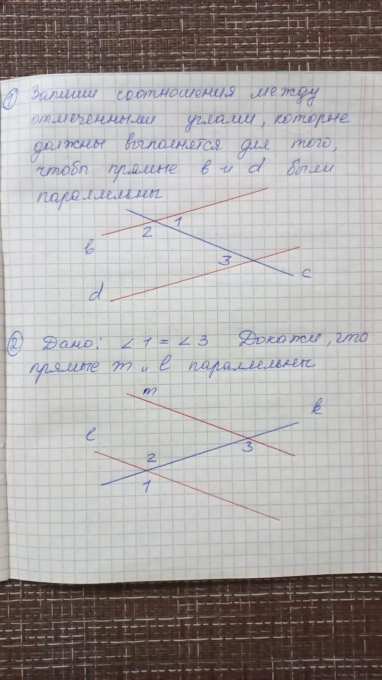 1 Запиши соотношения между
отмеченными углами, которые
должны выполнятся для того,
чтобы прямые в и d были
параллельны
1
2
в
3
c
d
2 Дано: ∠1 = ∠3 Докажи, что
прямые m и l параллельны
m
k
l
2
3
1